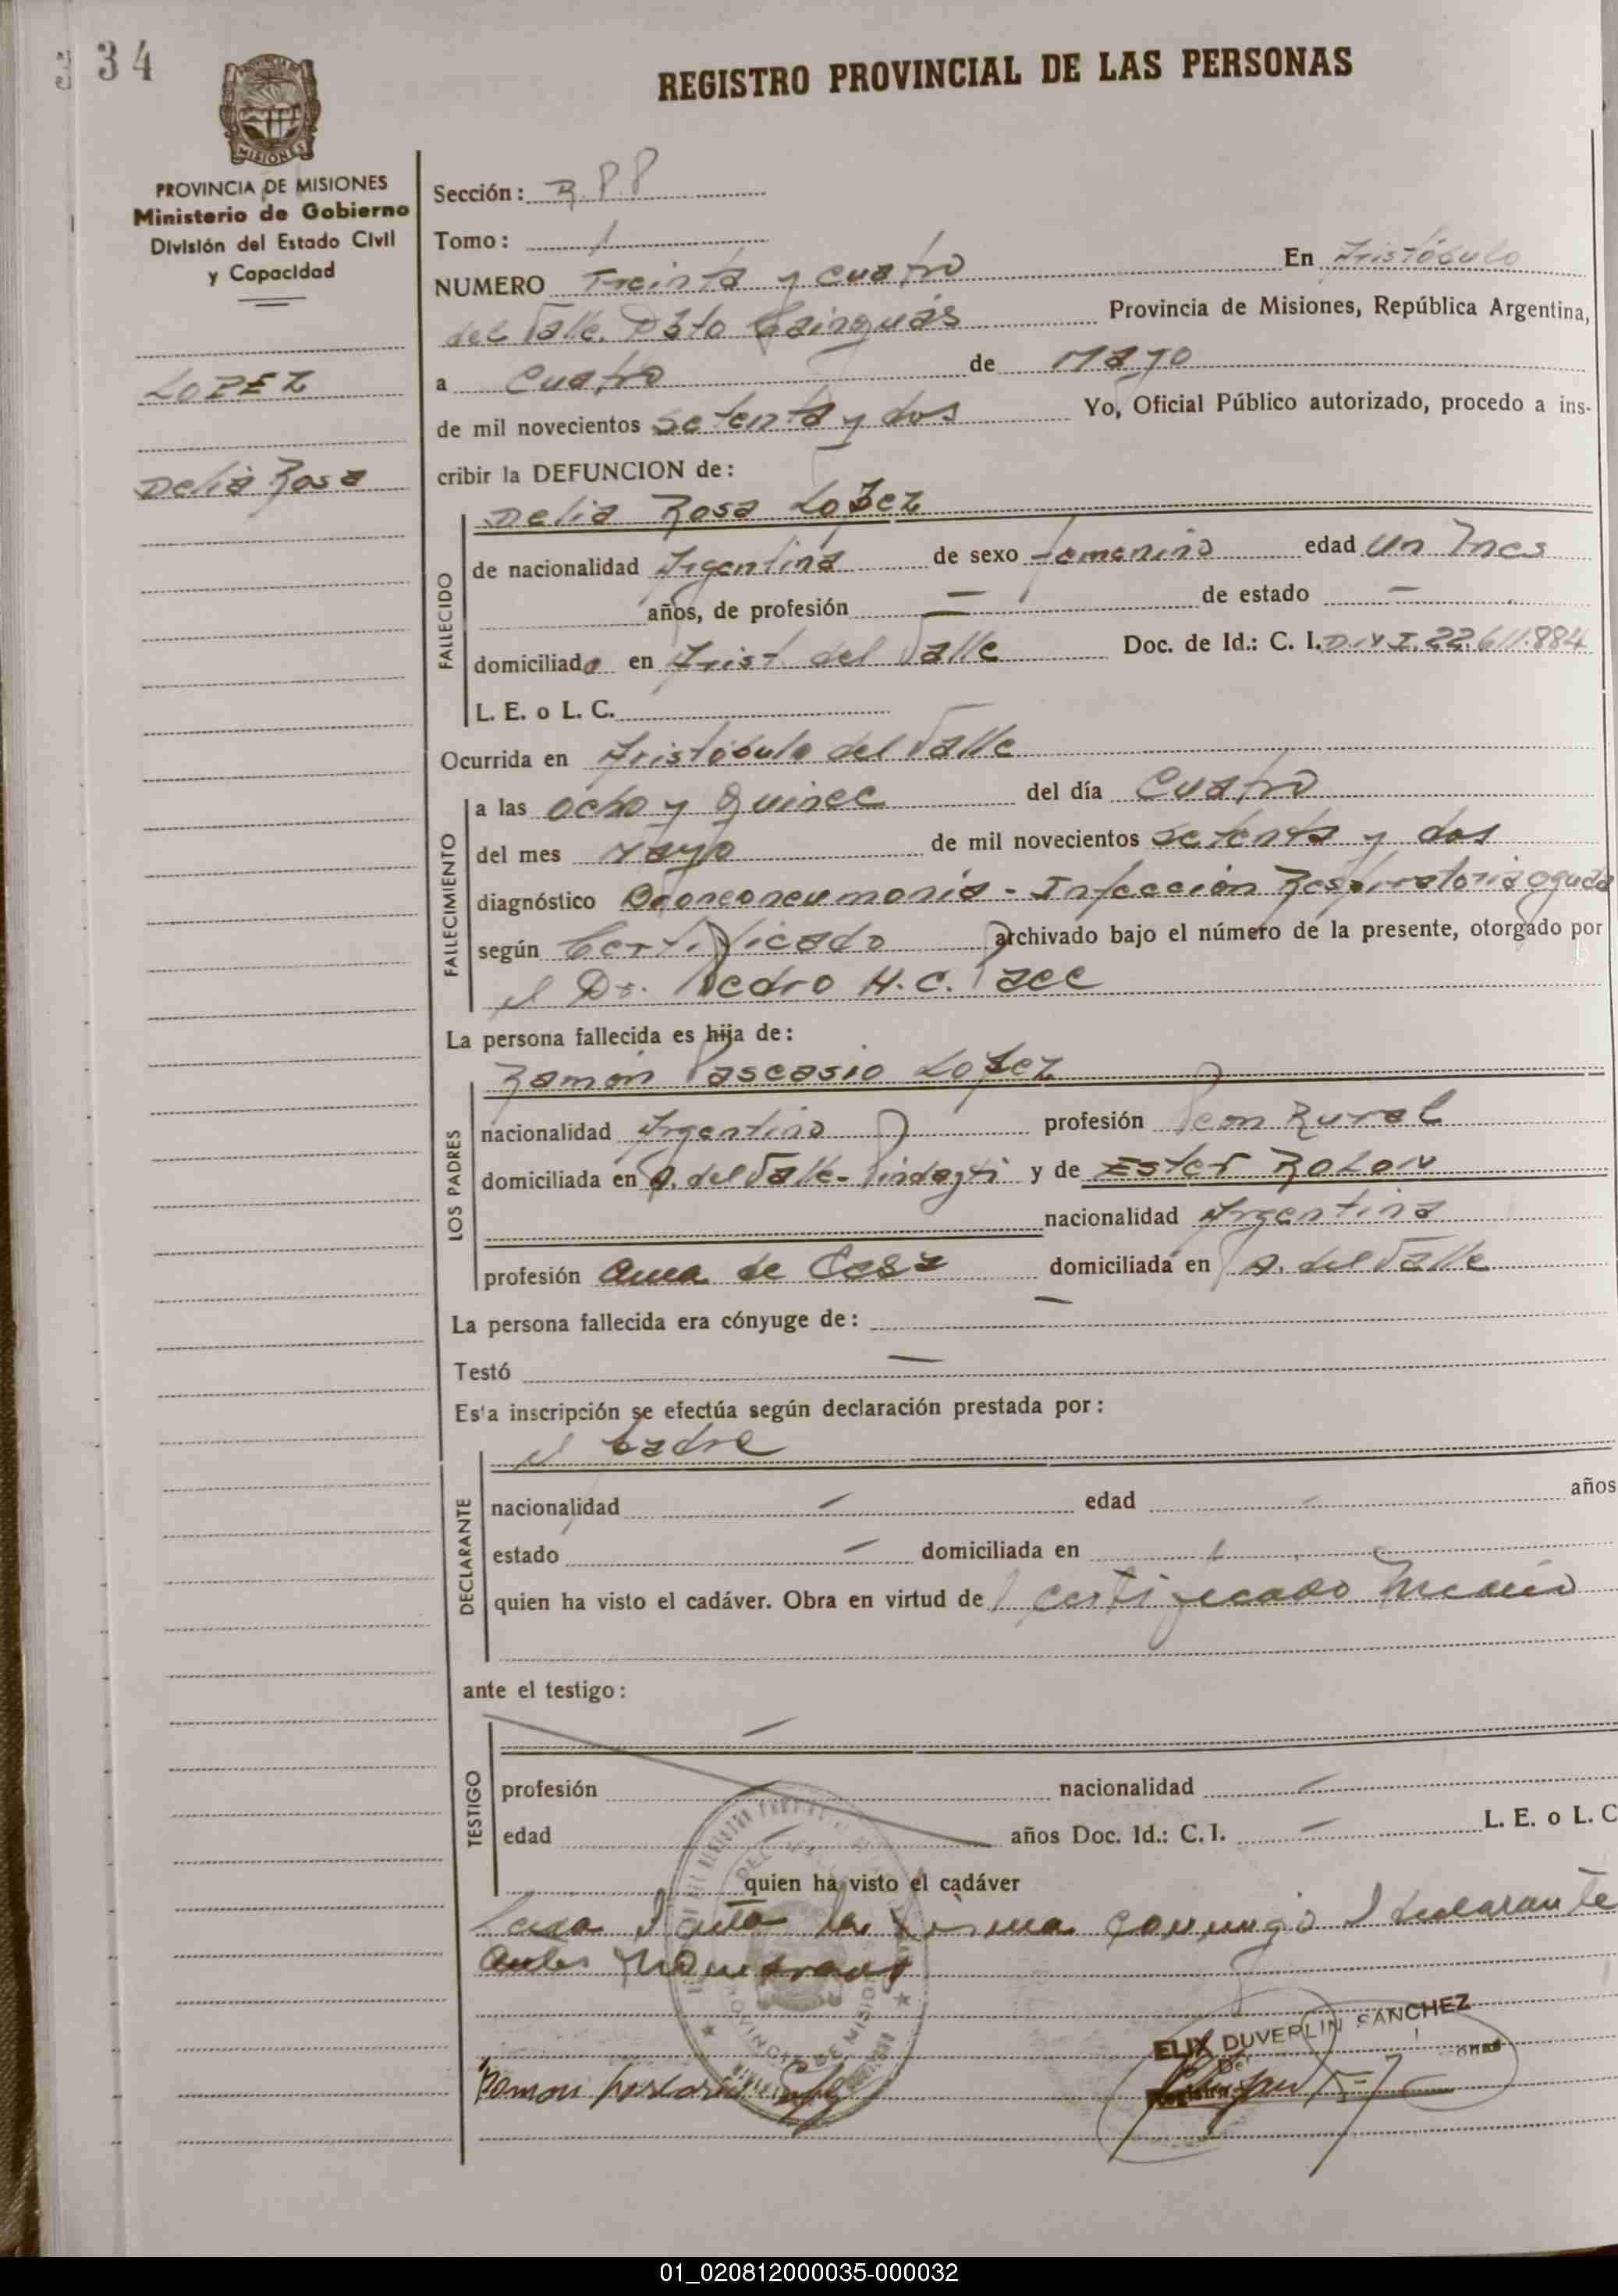 34
REGISTRO PROVINCIAL DE LAS PERSONAS
MISIONES
PROVINCIA DE MISIONES
Ministerio de Gobierno
División del Estado Civil
y Capacidad
LOPEZ
Delia Rosa
Sección: R.P.P
Tomo: 1
NUMERO Treinta y cuatro En Aristóbulo
del Valle. Dpto Cainguás Provincia de Misiones, República Argentina,
a Cuatro de Mayo
de mil novecientos setenta y dos Yo, Oficial Público autorizado, procedo a ins-
cribir la DEFUNCION de:
Delia Rosa Lopez
FALLECIDO
de nacionalidad Argentina de sexo femenino edad Un Mes
años, de profesión — de estado —
domiciliada en Arist. del Valle Doc. de Id.: C. I. D.N.I. 22.611.884
L. E. o L. C.
Ocurrida en Aristóbulo del Valle
FALLECIMIENTO
a las ocho y quince del día Cuatro
del mes Mayo de mil novecientos setenta y dos
diagnóstico Bronconeumonia - Infección Respiratoria aguda
según Certificado archivado bajo el número de la presente, otorgado por
el Dr. Pedro H.C.
La persona fallecida es hija de:
Ramón Pascasio Lopez
LOS PADRES
nacionalidad Argentino profesión Peon Rural
domiciliada en A. del Valle - Pindayti y de Ester ROLON
nacionalidad Argentina
profesión Ama de Casa domiciliada en A. del Valle
La persona fallecida era cónyuge de: —
Testó —
Esta inscripción se efectúa según declaración prestada por:
el padre
DECLARANTE
nacionalidad — edad — años
estado — domiciliada en
quien ha visto el cadáver. Obra en virtud de certificado Medico
ante el testigo:
—
TESTIGO
profesión — nacionalidad —
edad — años Doc. Id.: C. I. — L. E. o L. C
quien ha visto el cadáver
Leida el acta la firma conmigo el declarante
antes nombrado
ELIX DUVERLIN SANCHEZ
Ramon
01_020812000035-000032